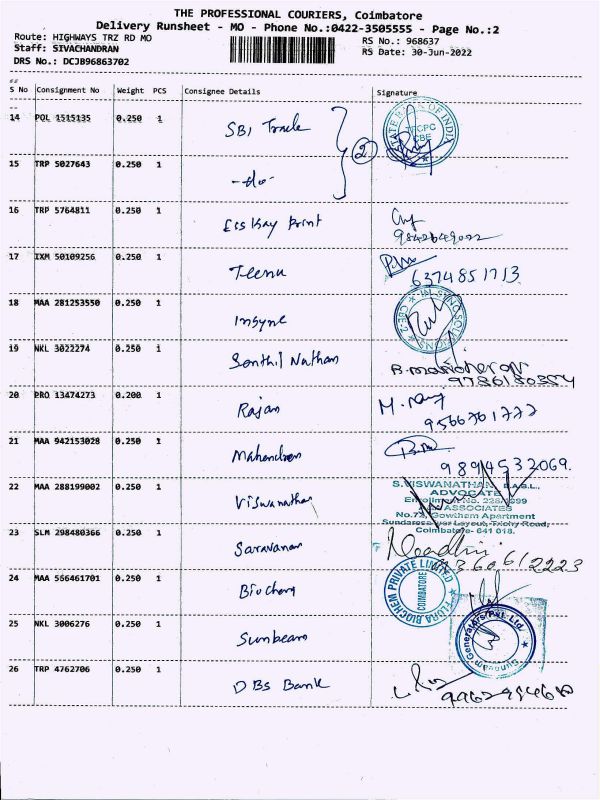 THE PROFESSIONAL COURIERS, Coimbatore
Delivery Runsheet - MO - Phone No.:0422-3505555 - Page No.:2
Route: HIGHWAYS TRZ RD MO
RS No.: 968637
Staff: SIVACHANDRAN
RS Date: 30-Jun-2022
DRS No.: DCJB96863702
##
S No Consignment No Weight PCS Consignee Details Signature
14 POL 1515135 0.250 1 SBI Trade
STATE BANK OF INDIA
TFCPC
CBE
2
15 TRP 5027643 0.250 1 -do-
16 TRP 5764811 0.250 1 Ess Kay Print
9842649022
17 IXM 50109256 0.250 1 Teenu
6374851713
18 MAA 281253550 0.250 1 Insyne
19 NKL 3022274 0.250 1 Senthil Nathan
B. manoharan
9786180354
20 PRO 13474273 0.200 1 Rajan
9566701777
21 MAA 942153028 0.250 1 Mahendran
9894532069.
22 MAA 288199002 0.250 1 Viswanathan
S.VISWANATHAN, B.A.B.L.,
ADVOCATE
Enrollment No. 228/1999
ASSOCIATES
No.73, Gowtham Apartment
Sundaresa Iyer Layout, Trichy Road,
Coimbatore- 641 018.
23 SLM 298480366 0.250 1 Saravanan
9360612223
24 MAA 556461701 0.250 1 Biochem
FLORA BIOCHEM PRIVATE LIMITED
COIMBATORE
25 NKL 3006276 0.250 1 Sunbeam
Sunbeam Generators Pvt. Ltd.
26 TRP 4762706 0.250 1 DBS Bank